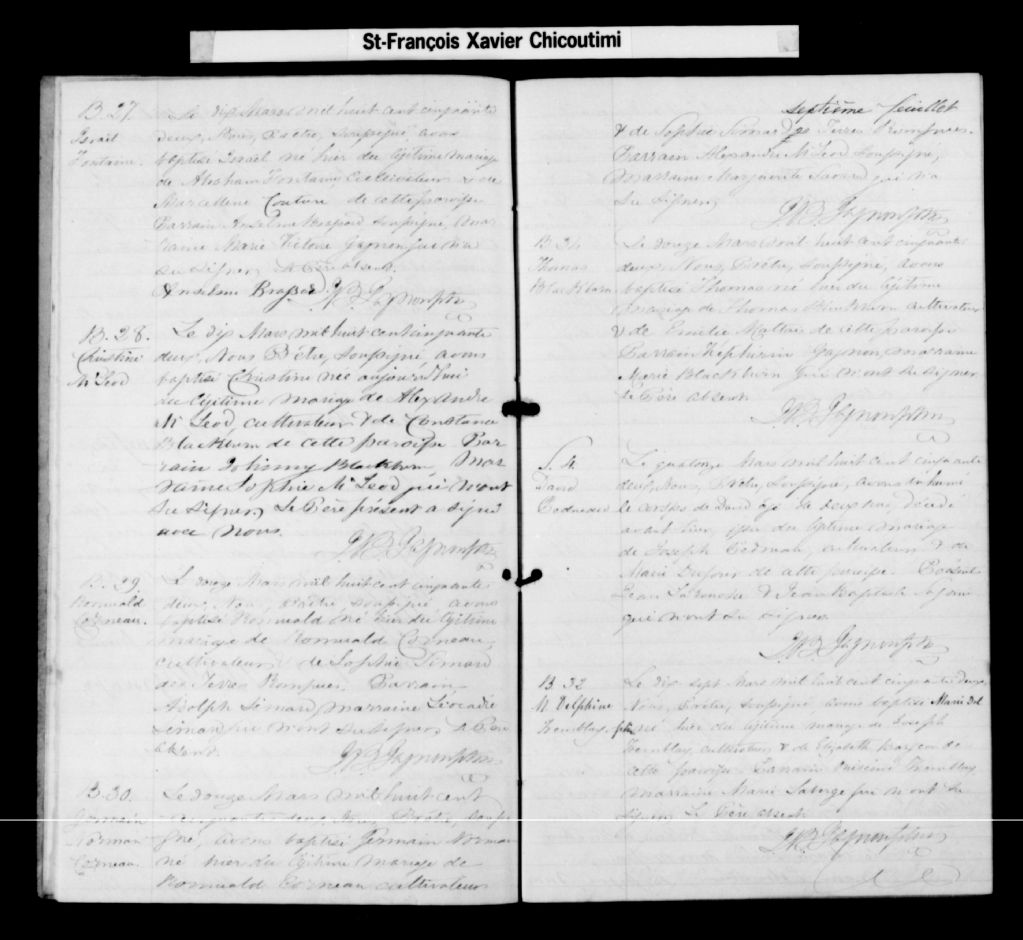 St-François Xavier Chicoutimi
B. 27.
Israël
Fontaine.
Le dix Mars mil huit cent cinquante
deux, Nous, Prêtre, soussigné avons
baptisé Israël né hier du légitime mariage
de Abraham Fontaine Cultivateur & de
Marcelline Couture de cette paroisse
Parrain Anselme Brassard soussigné, Mar
raine Marie Gagnon qui n'a
su signer. Le Père absent.
Anselme Brassard
B. 28.
Christine
McLeod
Le dix Mars mil huit cent cinquante
deux, Nous Prêtre, soussigné avons
baptisé Christine née aujourd'hui
du légitime mariage de Alexandre
McLeod, cultivateur & de Constance
Blackburn de cette paroisse Par
rain Johnny Blackburn, Mar
raine Sophie McLeod qui n'ont
su signer. Le Père présent a signé
avec nous.
B. 29.
Romuald
Corneau.
Le douze Mars mil huit cent cinquante
deux, Nous, Prêtre, soussigné, avons
baptisé Romuald né hier du légitime
mariage de Romuald Corneau,
cultivateur de Sophie Simard
des Terres Rompues. Parrain,
Adolph Simard, marraine Léocadie
Simard qui n'ont su signer. Le Père
absent.
B. 30.
Germain
Norman
Corneau.
Le douze Mars mil huit cent
cinquante deux, Nous, Prêtre, sous
gné, avons baptisé Germain Norman
né hier du légitime mariage de
Romuald Corneau cultivateur
septième feuillet
& de Sophie Simard des Terres Rompues.
Parrain Alexandre McLeod soussigné,
marraine Marguerite Savard qui n'a
su signer.
B. 31
Thomas
Blackburn
Le douze Mars mil huit cent cinquante
deux, Nous, Prêtre, soussigné, avons
baptisé Thomas né hier du légitime
mariage de Thomas Blackburn cultivateur
& de Emilie Maltais de cette paroisse
Parrain Zéphirin Gagnon, marraine
Marie Blackburn qui n'ont su signer
Le Père absent
S. 4
David
Le quatorze Mars mil huit cent cinquante
deux, Nous, Prêtre, soussigné, avons inhumé
le corps de David âgé de deux mois, décédé
avant hier, issu du légitime mariage
de Joseph cultivateur & de
Marie Dufour de cette paroisse. Présent
Jean & Jean Baptiste
qui n'ont su signer.
B. 32
M. Delphine
Tremblay.
Le dix sept Mars mil huit cent cinquante deux,
Nous, Prêtre, soussigné avons baptisé Marie Del
phine née hier du légitime mariage de Joseph
Tremblay, cultivateur & de Elizabeth de
cette paroisse. Parrain Tremblay
marraine Marie Laberge qui n'ont su
signer. Le Père absent